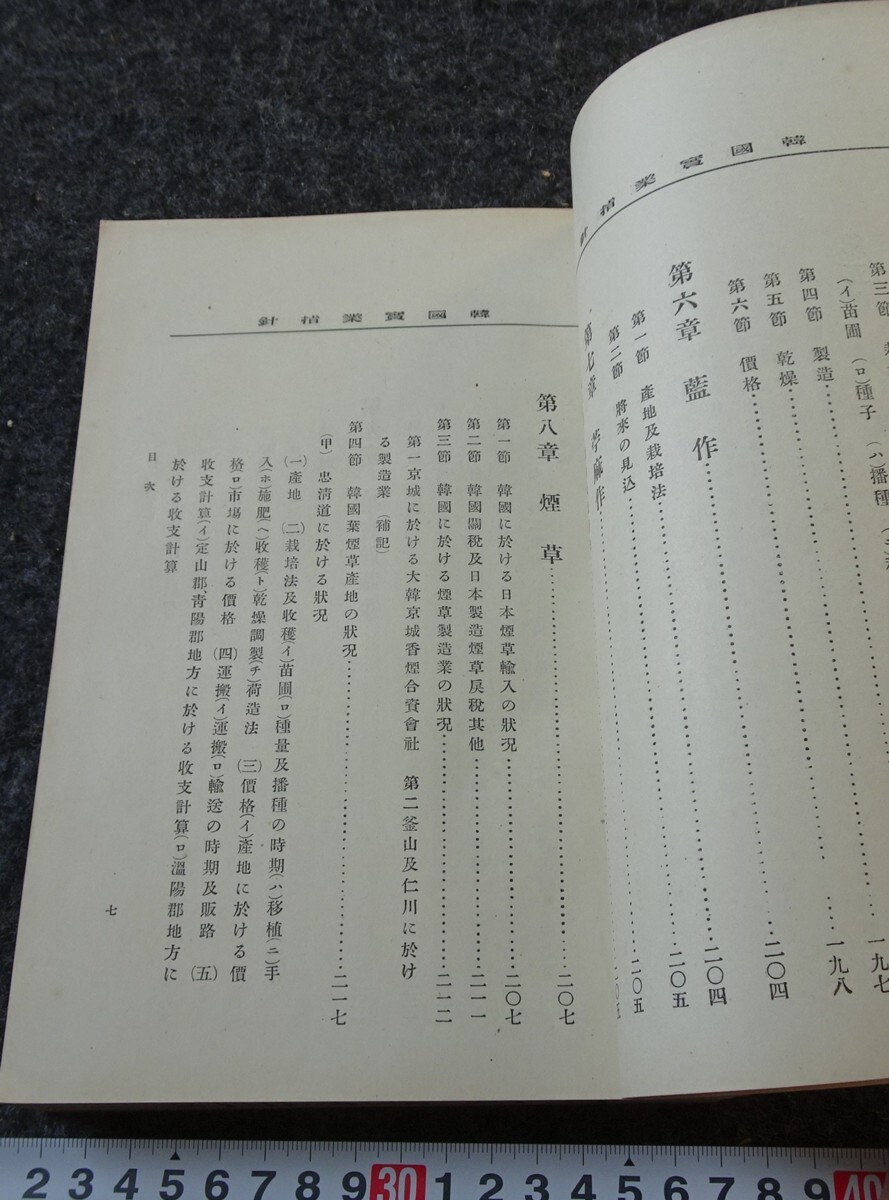 韓國實業指針
第三節
(イ)苗圃 (ロ)種子 (ハ)播種
一九七
第四節 製造……一九八
第五節 乾燥……二〇四
第六節 價格
第六章 藍作……二〇四
第一節 產地及栽培法……二〇五
第二節 將來の見込……二〇五
第七章 苧麻作
韓國實業指針
第八章 煙草……二〇七
第一節 韓國に於ける日本煙草輸入の狀況……二〇七
第二節 韓國關稅及日本製造煙草戾稅其他……二一一
第三節 韓國に於ける煙草製造業の狀況……二一二
第一京城に於ける大韓京城香煙合資會社 第二釜山及仁川に於け
る製造業 (補記)
第四節 韓國葉煙草產地の狀況……二一七
(甲) 忠清道に於ける狀況
(一)產地 (二)栽培法及收穫(イ)苗圃(ロ)種量及播種の時期(ハ)移植(ニ)手
入(ホ)施肥(ヘ)收穫(ト)乾燥調製(チ)荷造法 (三)價格(イ)產地に於ける價
格(ロ)市場に於ける價格 (四)運搬(イ)運搬(ロ)輸送の時期及販路 (五)
收支計算(イ)定山郡、靑陽郡地方に於ける收支計算(ロ)溫陽郡地方に
於ける收支計算
目次
七
2 3 4 5 6 7 8 9 30 1 2 3 4 5 6 7 8 9 40